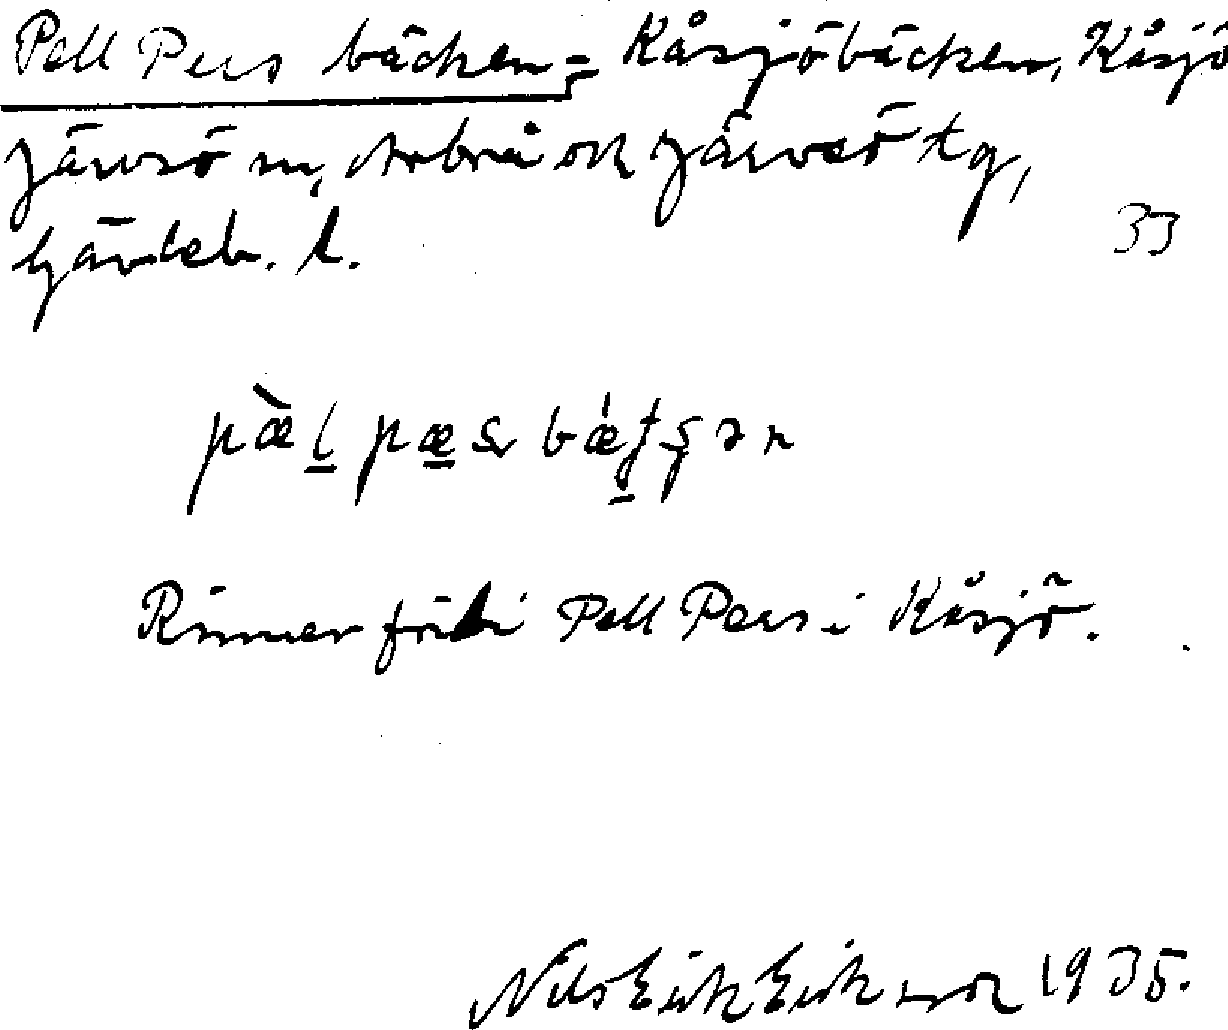 Pell Pers bäcken = Kåsjöbäcken, Kåsjö
Järvsö sn, Arbrå och Järvsö tg,
Gävleb. l. 33
pæ̀l pæʂ bǽʈʂən
Rinner förbi Pell Pers i Kåsjö.
Nils Erik Eriksson 1935.